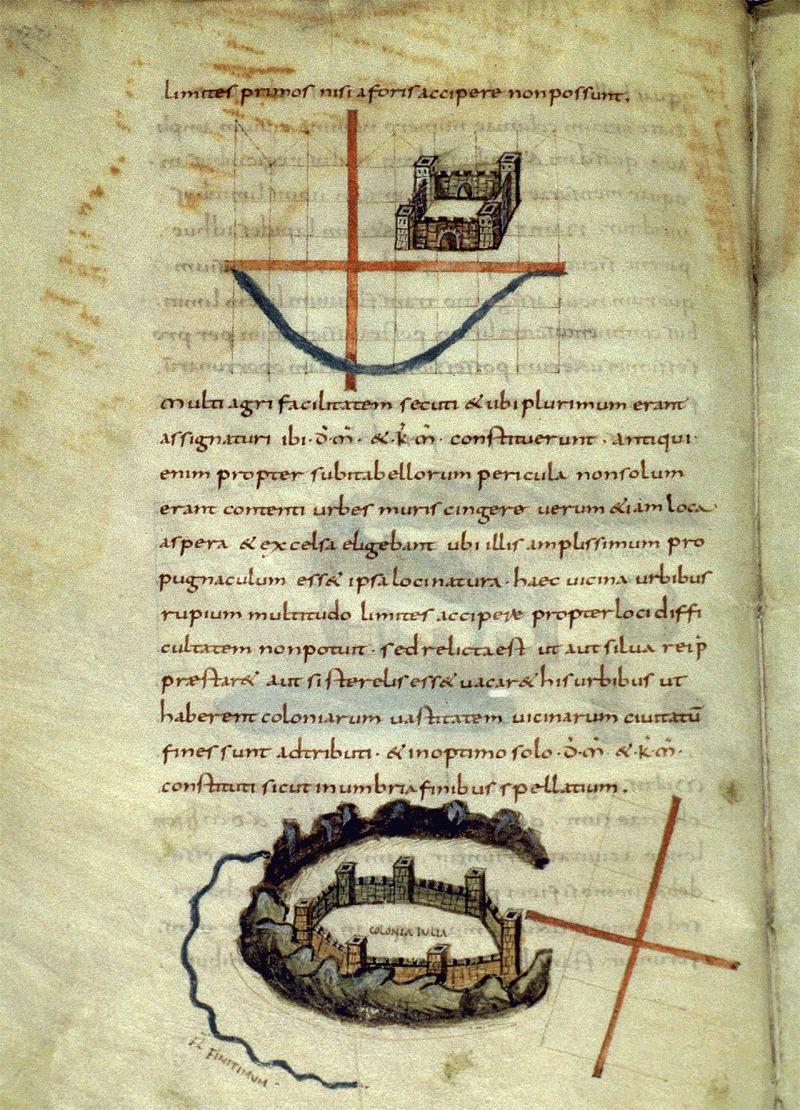 limites primos nisi aforis accipere non possunt.
Multi agri facilitatem secuti & ubi plurimum erant
assignaturi ibi · D̄ · M̄ · & · K̄ · M̄ · constituerunt · antiqui
enim propter subita bellorum pericula non solum
erant contenti urbes muris cingere uerum & iam loca
aspera & excelsa eligebant ubi illis amplissimum pro
pugnaculum ess& ipsa loci natura · haec uicina urbibus
rupium multitudo limites accipere propter loci diffi
cultatem non potuit · sed relicta est ut aut silua rei p̄
præstar& aut si sterelis ess& uacar& his urbibus ut
haberent coloniarum uastitatem uicinarum ciuitatū
fines sunt adtributi · & in optimo solo · D̄ · M̄ & · K̄ · M̄ ·
constituti sicut in umbria finibus spellatium .
COLONIA IULIA
FL FINITIMUM